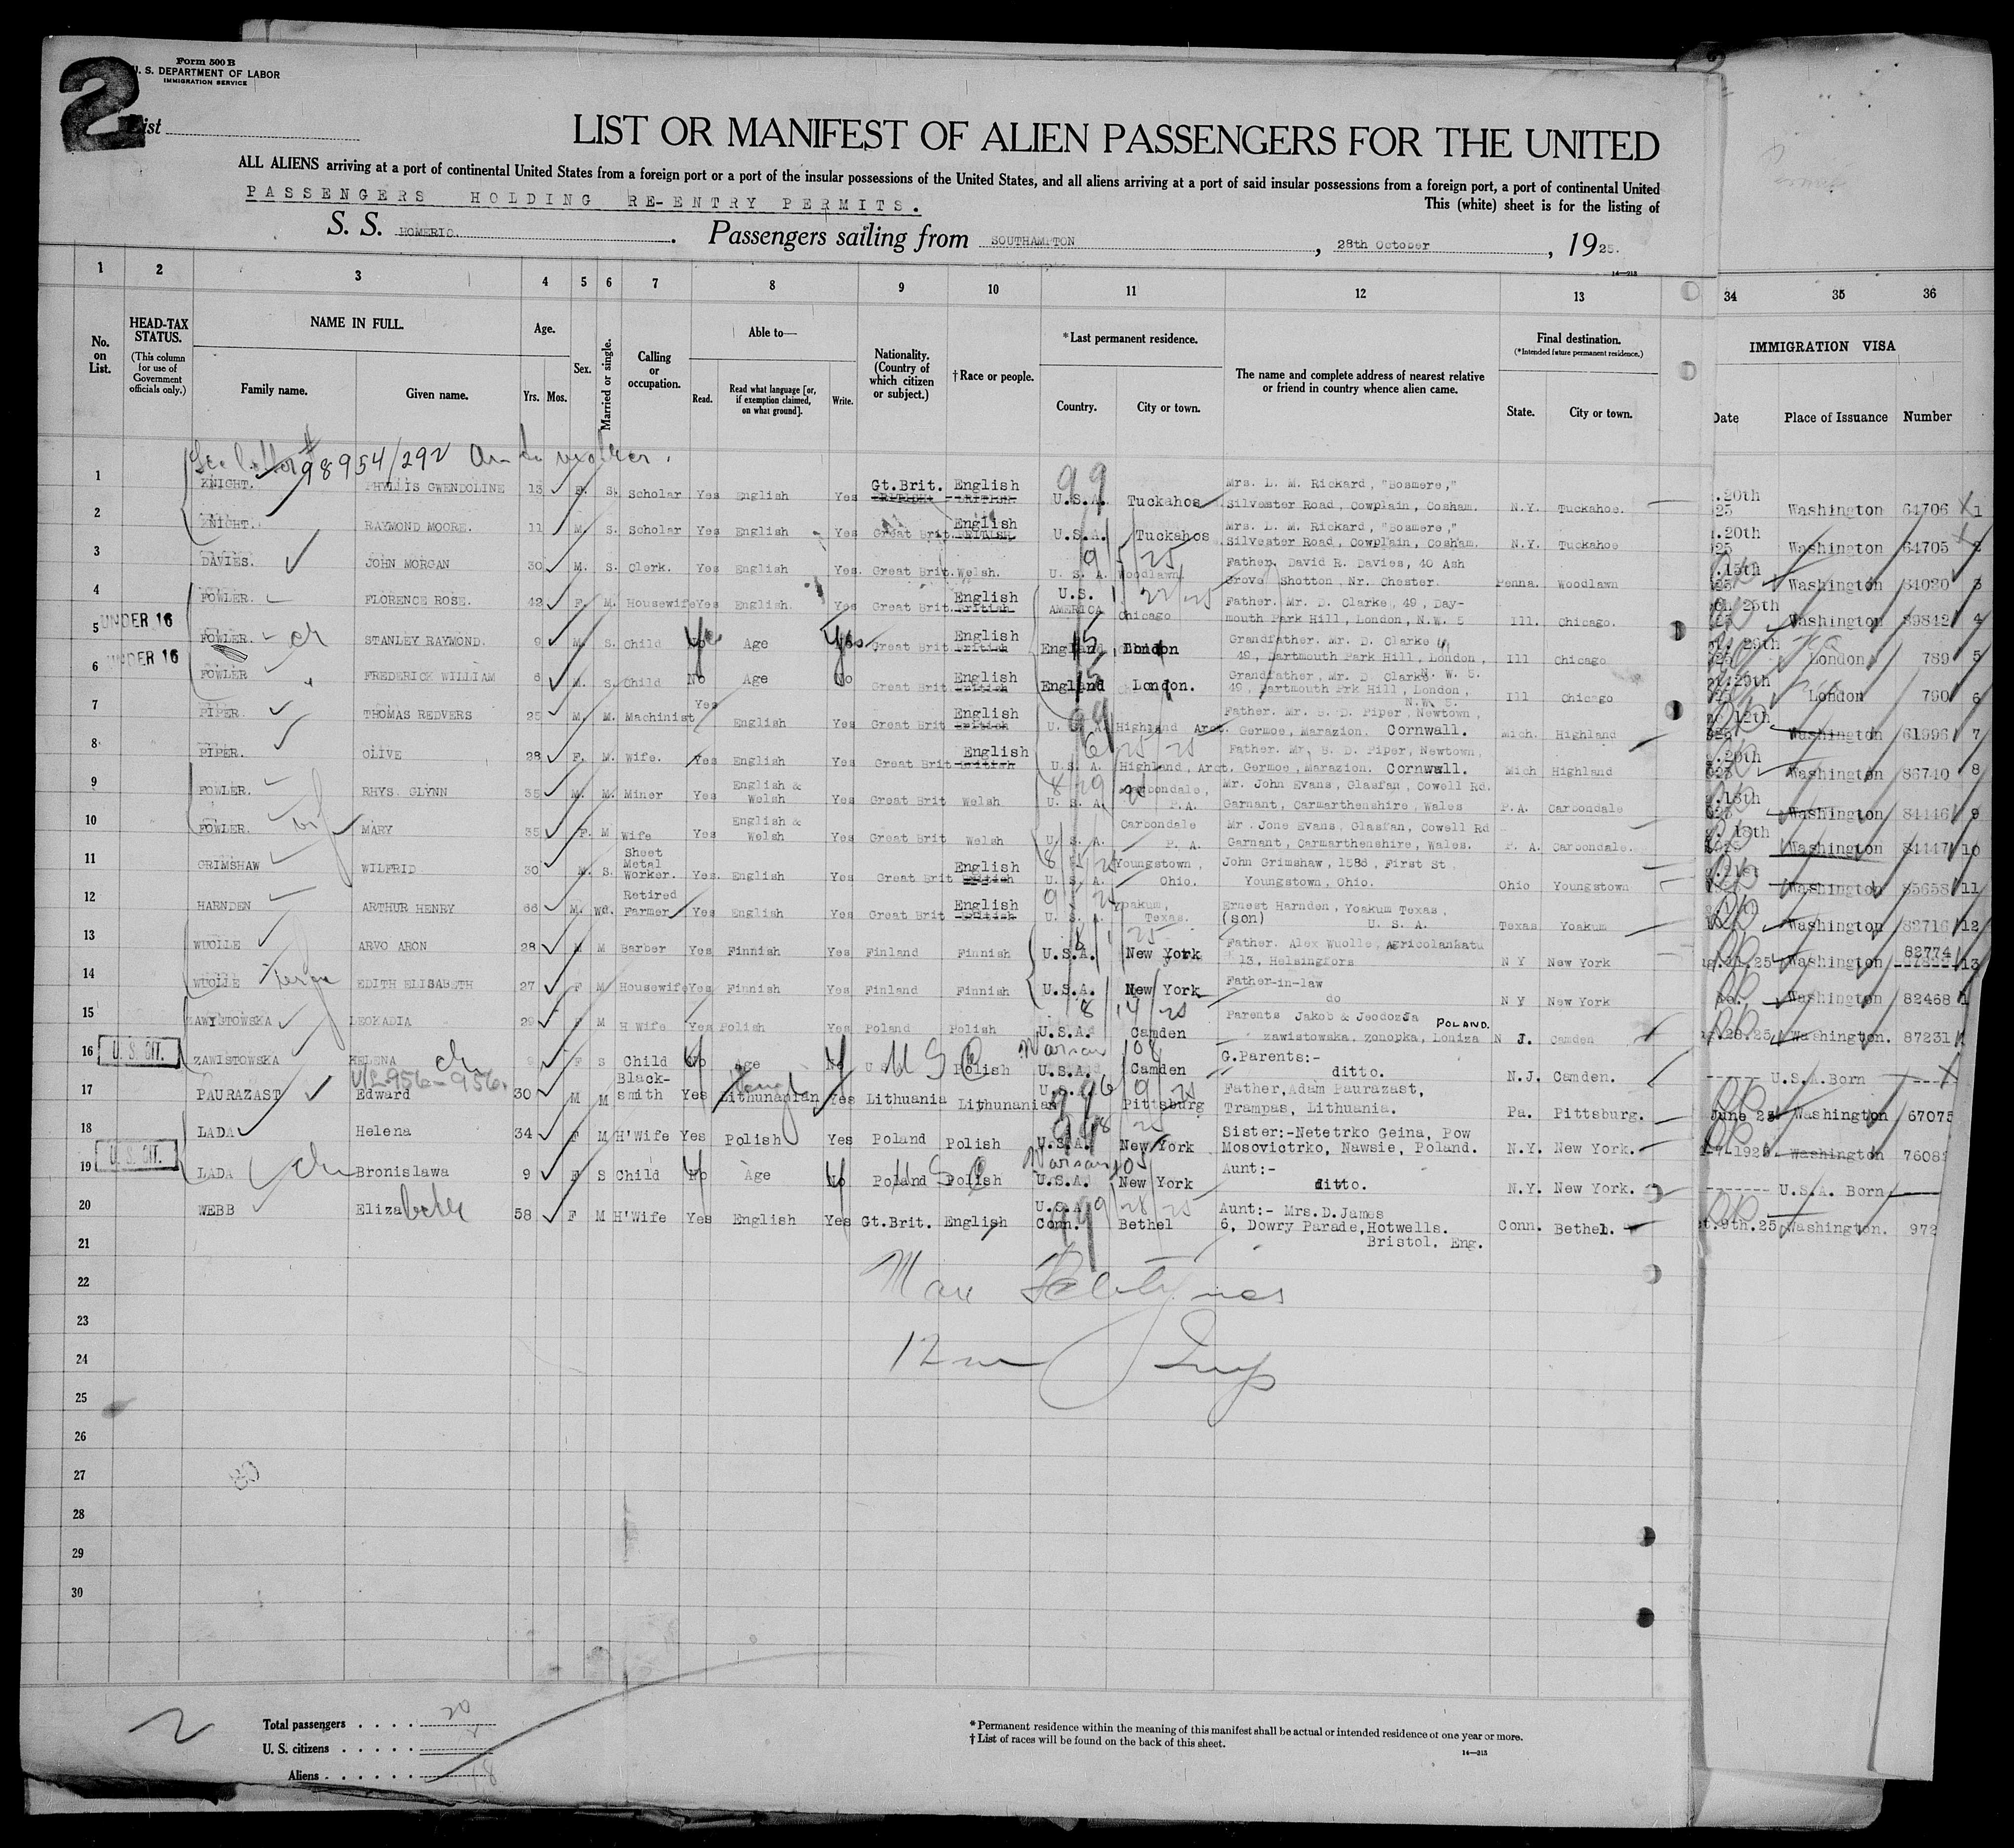 2
Form 500 B
U. S. DEPARTMENT OF LABOR
IMMIGRATION SERVICE
List
LIST OR MANIFEST OF ALIEN PASSENGERS FOR THE UNITED
ALL ALIENS arriving at a port of continental United States from a foreign port or a port of the insular possessions of the United States, and all aliens arriving at a port of said insular possessions from a foreign port, a port of continental United
PASSENGERS HOLDING RE-ENTRY PERMITS.
This (white) sheet is for the listing of
S. S. HOMERIC. Passengers sailing from SOUTHAMPTON, 28th October, 1925.
14—213
1 2 3 4 5 6 7 8 9 10 11 12 13 34 35 36
No. on List.
HEAD-TAX STATUS.
(This column for use of Government officials only.)
NAME IN FULL.
Family name. Given name.
Age.
Yrs. Mos.
Sex.
Married or single.
Calling or occupation.
Able to—
Read. Read what language [or, if exemption claimed, on what ground]. Write.
Nationality. (Country of which citizen or subject.)
† Race or people.
* Last permanent residence.
Country. City or town.
The name and complete address of nearest relative or friend in country whence alien came.
Final destination.
(* Intended future permanent residence.)
State. City or town.
IMMIGRATION VISA
Date Place of Issuance Number
98954/292
1 KNIGHT. PHYLLIS GWENDOLINE 13 F. S. Scholar Yes English Yes Gt.Brit. English U.S.A. Tuckahoe Mrs. L. M. Rickard, "Bosmere," Silvester Road, Cowplain, Cosham. N.Y. Tuckahoe. .20th 25 Washington 64706 1
2 KNIGHT. RAYMOND MOORE. 11 M. S. Scholar Yes English Yes Great Brit English U.S.A. Tuckahos Mrs. L. M. Rickard, "Bosmere," Silvester Road, Cowplain, Cosham. N.Y. Tuckahoe .20th 25 Washington 64705 2
3 DAVIES. JOHN MORGAN 30 M. S. Clerk. Yes English Yes. Great Brit. Welsh. U. S. A. Woodlawn. Father. David R. Davies, 40 Ash Grove Shotton, Nr. Chester. Penna. Woodlawn .15th Washington 84020 3
4 FOWLER. FLORENCE ROSE. 42 F. M. Housewife Yes English. Yes Great Brit English U.S. AMERICA Chicago Father. Mr. D. Clarke, 49, Day-mouth Park Hill, London, N.W. 5 Ill. Chicago. 26th Washington 89842 4
UNDER 16
5 FOWLER. ch STANLEY RAYMOND. 9 M. S. Child Yes Age Yes Great Brit English England London Grandfather. Mr. D. Clarke 49, Dartmouth Park Hill, London, Ill Chicago 26th London 789 5
UNDER 16
6 FOWLER FREDERICK WILLIAM 6 M. S. Child No Age No Great Brit English England London. Grandfather, Mr. D. Clarke N. W. 5. 49, Dartmouth Prk Hill, London, N.W. 5. Ill Chicago .26th London 790 6
7 PIPER. THOMAS REDVERS 25 M. M. Machinist Yes English Yes Great Brit English U. S. A. Highland Arct. Father. Mr. S. D. Piper, Newtown, Germoe, Marazion. Cornwall. Mich. Highland 12th Washington 61996 7
8 PIPER. OLIVE 28 F. M. Wife. Yes English Yes Great Brit English U. S. A. Highland, Arct. Father. Mr. S. D. Piper, Newtown, Germoe, Marazion. Cornwall. Mich Highland .20th Washington 86740 8
9 FOWLER. RHYS. GLYNN 35 M. M. Miner Yes English & Welsh Yes Great Brit Welsh U. S. A. Carbondale, P.A. Mr. John Evans, Glasfan, Cowell Rd. Garnant, Carmarthenshire, Wales P.A. Carbondale .18th Washington 84446 9
10 FOWLER. MARY 35 F. M Wife Yes English & Welsh Yes Great Brit Welsh U. S. A. Carbondale P. A. Mr. Jone Evans, Glasfan, Cowell Rd Garnant, Carmarthenshire, Wales. P. A. Carbondale. 18th Washington 84447 10
11 GRIMSHAW WILFRID 30 M. S. Sheet Metal Worker. Yes. English Yes Great Brit English U. S. A. Youngstown, Ohio. John Grimshaw, 1586, First St. Youngstown, Ohio. Ohio Youngstown .21st Washington 85658 11
12 HARNDEN ARTHUR HENRY 66 M. Wd. Retired Farmer Yes English Yes Great Brit English U. S. A. Yoakum, Texas. Ernest Harnden, Yoakum Texas, (son) U. S. A. Texas Yoakum Washington 82716 12
13 WUOLLE ARVO ARON 28 M M Barber Yes Finnish Yes Finland Finnish U.S.A. New York Father. Alex Wuolle, Agricolankatu 13, Helsingfors N Y New York .11.25 Washington 82774 13
14 WUOLLE EDITH ELISABETH 27 F M Housewife Yes Finnish Yes Finland Finnish U.S.A. New York Father-in-law do N Y New York do. Washington 82468
15 ZAWISTOWSKA LEOKADIA 29 F M H Wife Yes Polish Yes Poland Polish U.S.A. Camden Parents Jakob & Jeodozja zawistowska, zonopka, Loniza POLAND. N J. Camden .28.25 Washington. 87231
U. S. CIT.
16 ZAWISTOWSKA HELENA ch 9 F S Child No Age No U S C Polish U.S.A. Camden G.Parents:- ditto. N.J. Camden. U.S.A.Born
17 PAURAZAST Edward 30 M M Black-smith Yes Lithunanian Yes Lithuania Lithunanian U.S.A. Pittsburg Father, Adam Paurazast, Trampas, Lithuania. Pa. Pittsburg. June 25 Washington 67075
18 LADA Helena 34 F M H'Wife Yes Polish Yes Poland Polish U.S.A. New York Sister:-Netetrko Geina, Pow Mosovictrko, Nawsie, Poland. N.Y. New York. 1925 Washington 7608
U. S. CIT.
19 LADA ch Bronislawa 9 F S Child No Age No Poland Polish U.S.A. New York Aunt:- ditto. N.Y. New York. U.S.A. Born
20 WEBB Elizabeth 58 F M H'Wife Yes English Yes Gt.Brit. English U.S.A. Conn. Bethel Aunt:- Mrs.D.James 6, Dowry Parade, Hotwells. Bristol. Eng. Conn. Bethel. .9th.25 Washington. 972
21
22
23
24
25
26
27
28
29
30
2
Total passengers . . . . 20
U. S. citizens . . . . . 2
Aliens . . . . . . 18
* Permanent residence within the meaning of this manifest shall be actual or intended residence of one year or more.
† List of races will be found on the back of this sheet.
14—213